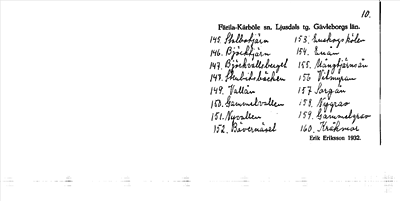 10.
Färila-Kårböle sn. Ljusdals tg. Gävleborgs län.
145. Stolbotjärn
146. Björktjärn
147. Björkvallsberget
148. Skubitsbäcken
149. Vallån
150. Gammelvallen
151. Nyvallen
152. Bävernäset
153. Enskogskölen
154. Enån
155. Mångtjärnsån
156. Vitmyran
157.
158. Nygrav
159. Gammelgrav
160. Kråkmoe
Erik Eriksson 1932.